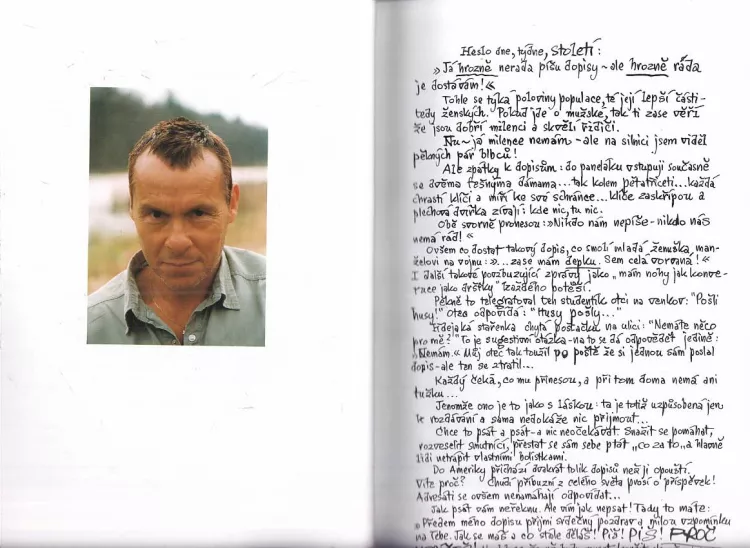 Heslo dne, týdne, století:
» Já hrozně nerada píšu dopisy – ale hrozně ráda
je dostávám! «
Tohle se týká poloviny populace, té její lepší části -
tedy ženských. Pokud jde o mužské, tak ti zase věří
že jsou dobří milenci a skvělí řidiči.
Nu – já milence nemám – ale na silnici jsem viděl
pěkných pár blbců!
Ale zpátky k dopisům: do paneláku vstupují současně
se dvěma těsnýma dámama... tak kolem pětatřiceti... každá
chrastí klíči a míří ke své schránce... klíče zaskřípou a
plechová dvířka zívají: kde nic, tu nic.
Obě svorně pronesou: » Nikdo nám nepíše – nikdo nás
nemá rád! «
Ovšem co dostat takový dopis, co smolí mladá ženuška, man-
želovi na vojnu: »... zase mám depku. Sem celá vorvaná! «
I další takové povzbuzující zprávy jako „mám nohy jak konve-
a ruce jako drštky" každého potěší.
Pěkně to telegrafoval ten studentík otci na venkov: "Pošli
husy!" Otec odpovídá: "Husy pošly..."
Zdejaká stařenka chytá pošťačku na ulici: "Nemáte něco
pro mě?" To je sugestivní otázka – na to se dá odpovědět jedině:
„Nemám." Můj otec tak toužil po poště že si jednou sám poslal
dopis – ale ten se ztratil...
Každý čeká, co mu přinesou, a přitom doma nemá ani
tužku...
Jenomže ono je to jako s láskou: ta je totiž uzpůsobena jen
k rozdávání a sama nedokáže nic přijmout...
Chce to psát a psát – a nic neočekávat. Snažit se pomáhat,
rozveselit smutnící, přestat se sám sebe ptát „co za to" a hlavně
lidi netrápit vlastními bolístkami.
Do Ameriky přichází dvakrát tolik dopisů než jí opouští.
Víte proč? Chudí příbuzní z celého světa prosí o příspěvek!
Adresáti se ovšem nenamáhají odpovídat...
Jak psát vám neřeknu. Ale vím jak nepsat! Tady to máte:
» Předem mého dopisu přijmi srdečný pozdrav a milou vzpomínku
na Tebe. Jak se máš a co stále děláš! Piš! Piš! PIŠ! PROČ